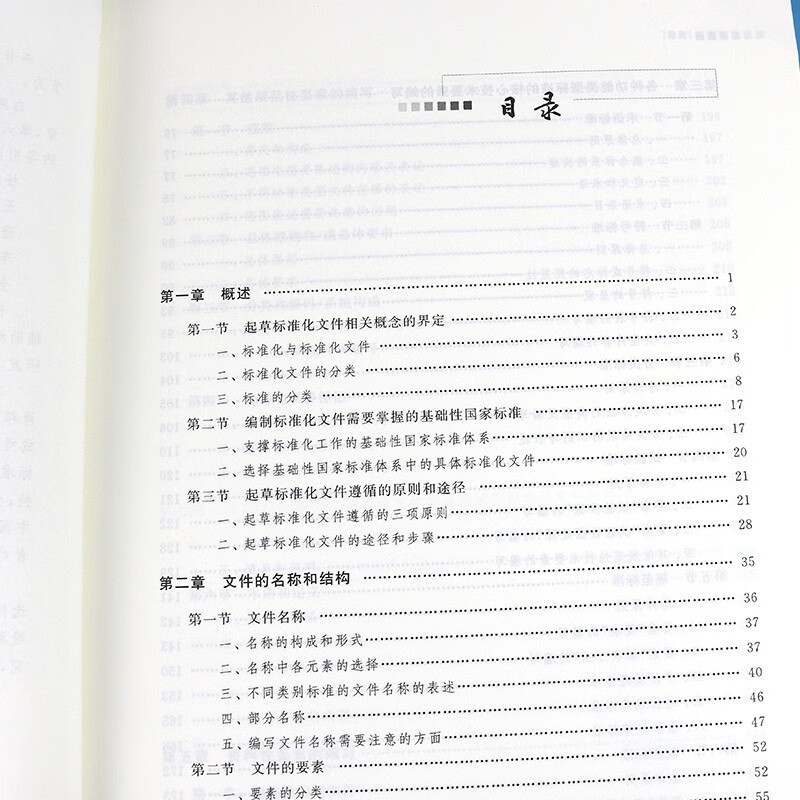 目录
第一章 概述 1
第一节 起草标准化文件相关概念的界定 2
一、标准化与标准化文件 3
二、标准化文件的分类 6
三、标准的分类 8
第二节 编制标准化文件需要掌握的基础性国家标准 17
一、支撑标准化工作的基础性国家标准体系 17
二、选择基础性国家标准体系中的具体标准化文件 20
第三节 起草标准化文件遵循的原则和途径 21
一、起草标准化文件遵循的三项原则 21
二、起草标准化文件的途径和步骤 28
第二章 文件的名称和结构 35
第一节 文件名称 36
一、名称的构成和形式 37
二、名称中各元素的选择 37
三、不同类别标准的文件名称的表述 40
四、部分名称 46
五、编写文件名称需要注意的方面 47
第二节 文件的要素 52
一、要素的分类 52
55